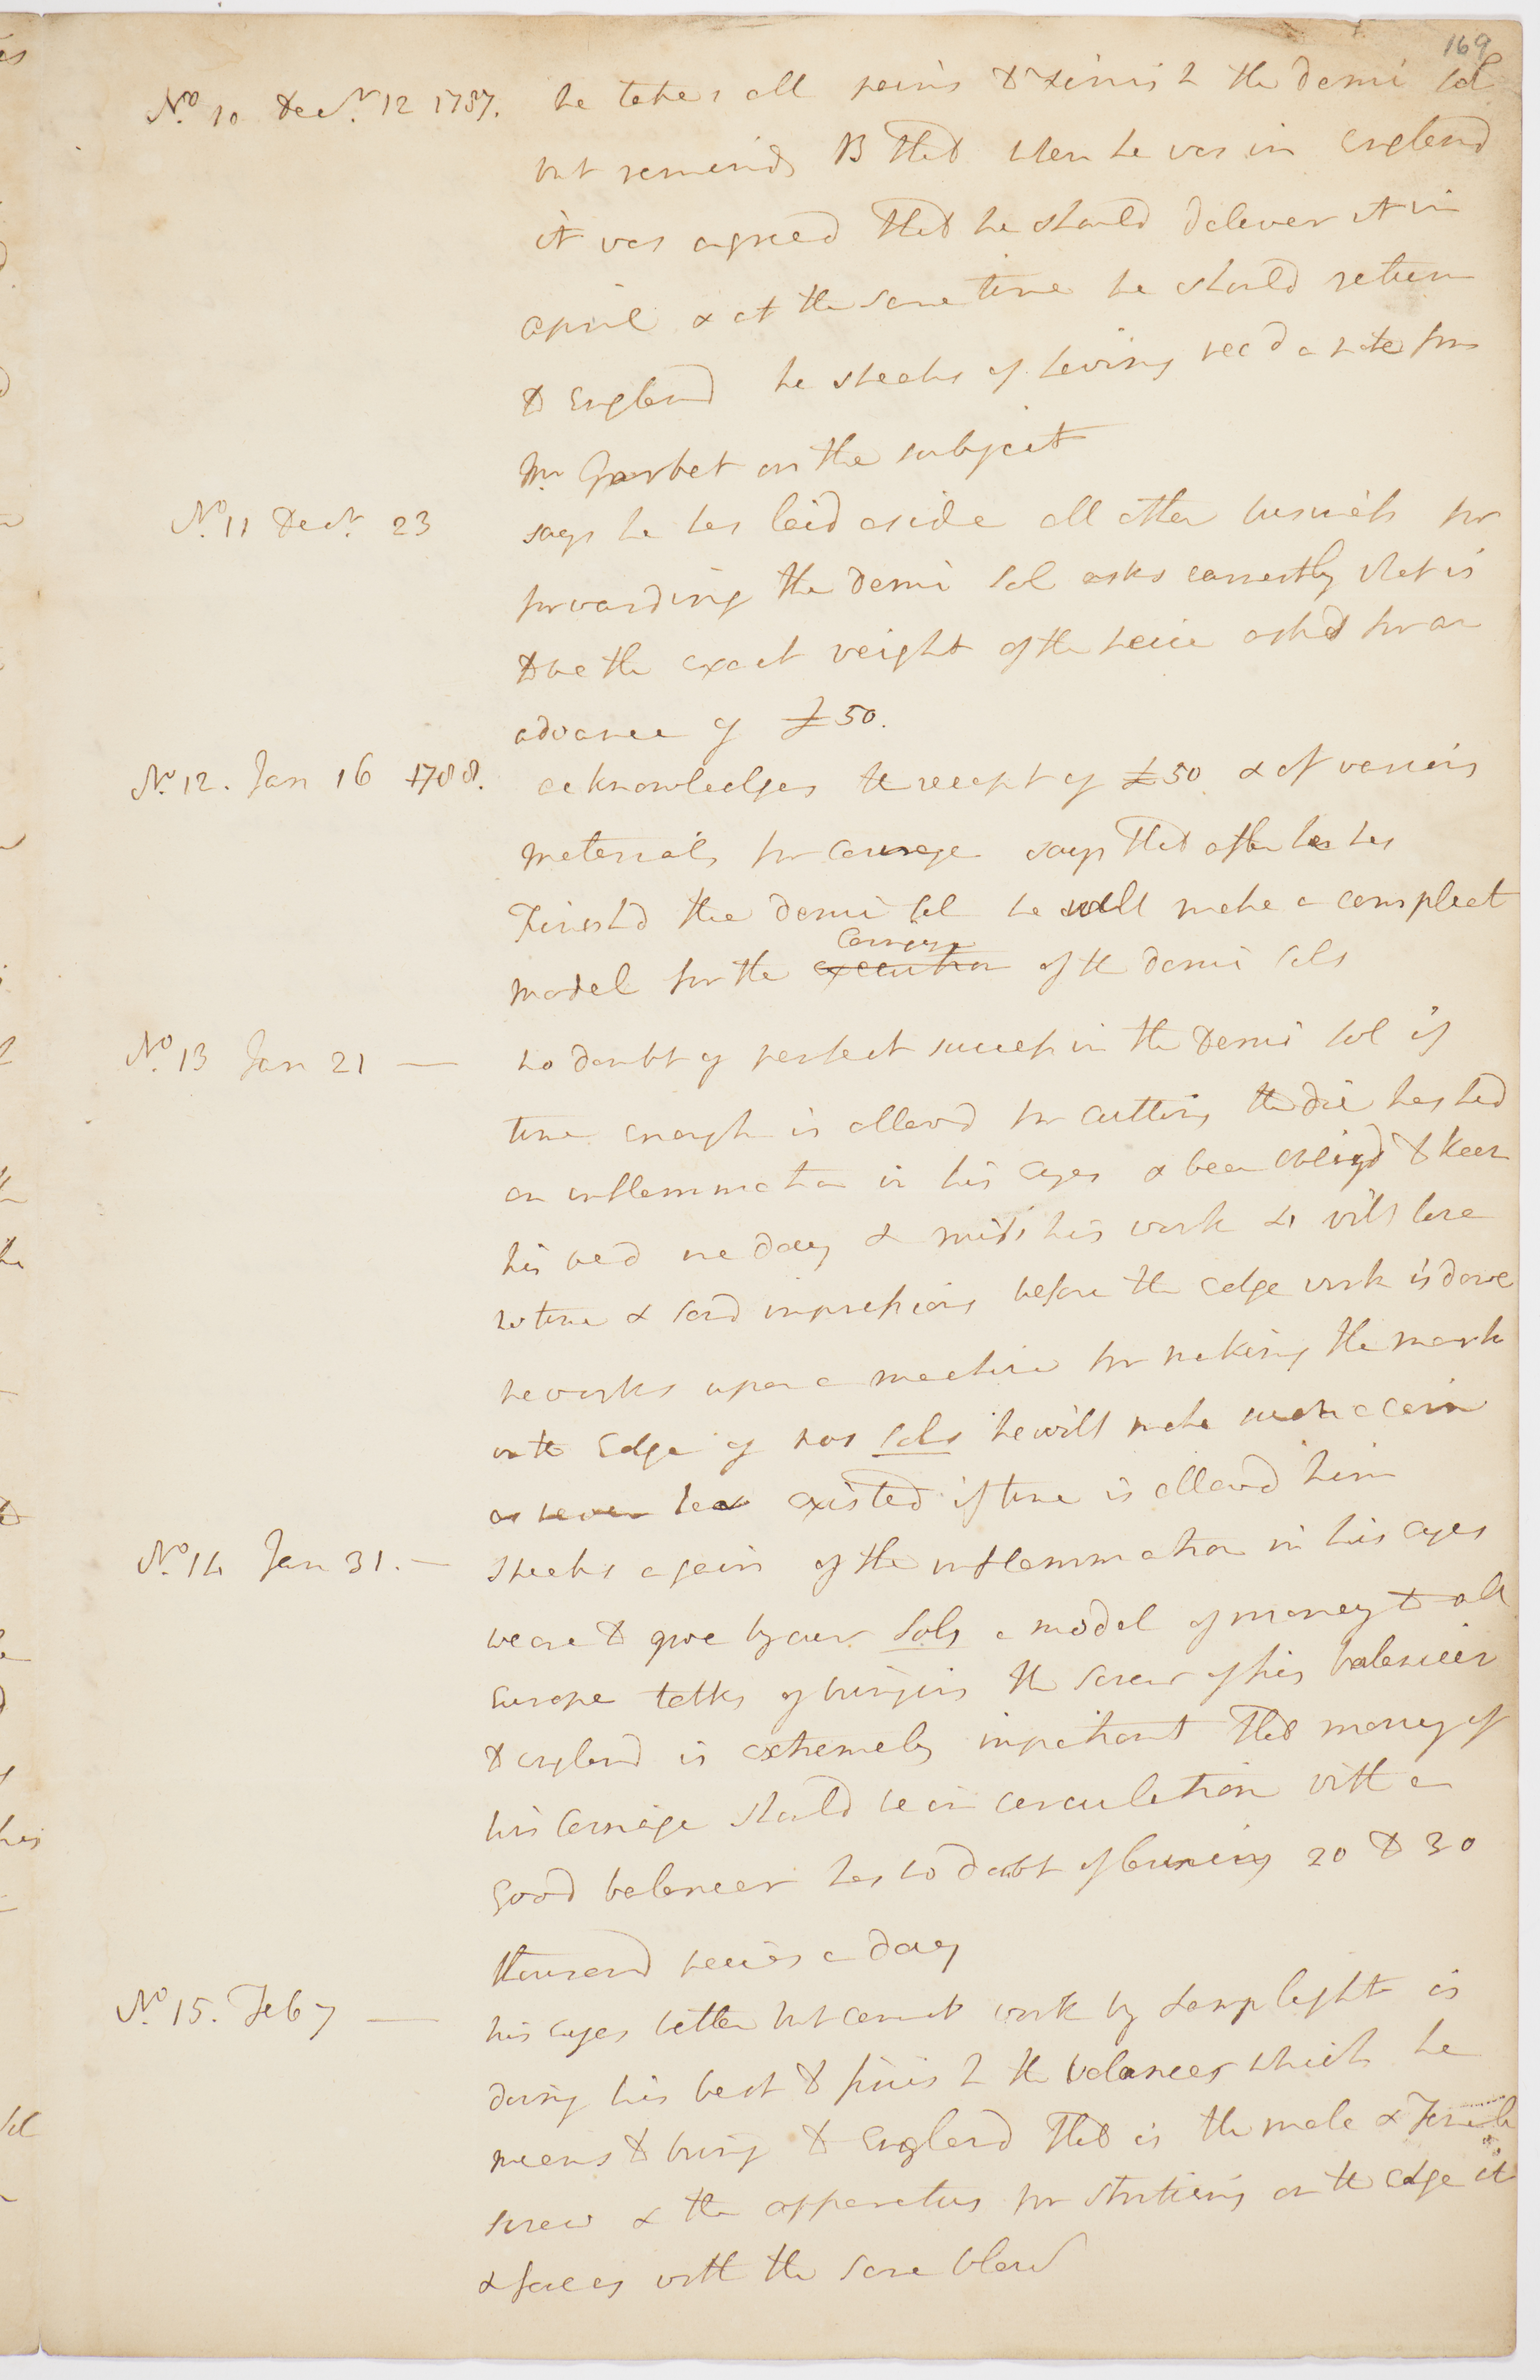 169
No. 10 Decr. 12 1787. he takes all pains to finish the demi sol
but reminds B that when he was in England
it was agreed that he should deliver it in
april & at the same time he should return
to England he speaks of having recd a note from
Mr Garbet on the subject
No. 11 Decr. 23 says he has laid aside all other business for
forwarding the demi sol asks earnestly what is
to be the exact weight of the peice asked for an
advance of £50.
No. 12. Jan 16 1788. acknowledges the receipt of £50 & of various
materials for Coinage says that after he has
Finishd the demi sol he will make a compleat
Coining
model for the execution of the demi sols
No. 13 Jan 21 — no doubt of perfect success in the demi sol if
time enough is allowd for cutting the die has had
an inflammation in his eyes & been obligd to keep
his bed one day & miss his work will lose
no time & send impressions before the edge work is done
he works upon a machine for making the mark
on the Edge of sols he will make such a coin
as never has existed if time is allowd him
No. 14 Jan 31. — speaks again of the inflammation in his eyes
we are to give by our Sols a model of money to all
Europe talks of bringing the screw of his balancier
to england is extremely impatient that money of
his Coinage should be in circulation with a
good balancer has no doubt of coining 20 to 30
thousand peices a day
No. 15. Feb 7 — his eyes better but cannot work by Lamp light is
doing his best to finish the balancer which he
means to bring to England that is the male & Female
screw & the apparatus for striking on the edge it
& faces with the same blow